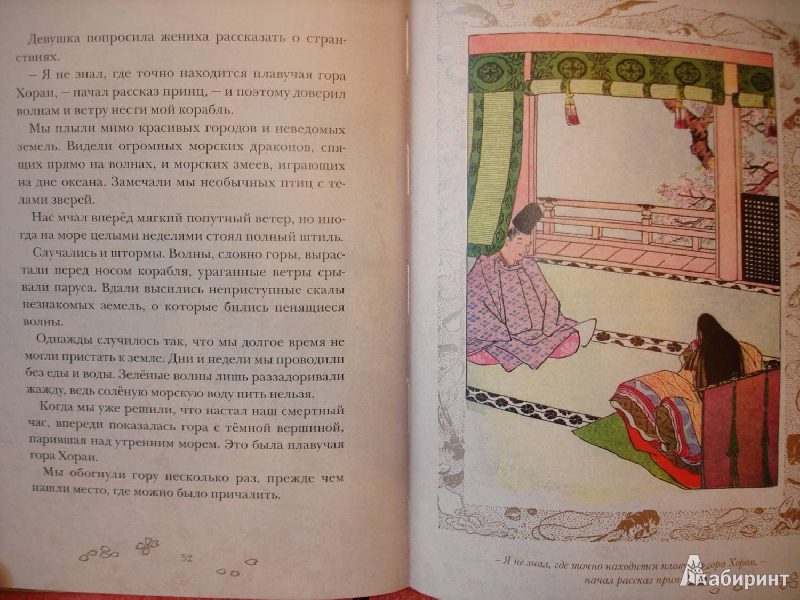 Девушка попросила жениха рассказать о стран-
ствиях.
– Я не знал, где точно находится плавучая гора
Хораи, – начал рассказ принц, – и поэтому доверил
волнам и ветру нести мой корабль.
Мы плыли мимо красивых городов и неведомых
земель. Видели огромных морских драконов, спя-
щих прямо на волнах, и морских змеев, играющих
на дне океана. Замечали мы необычных птиц с те-
лами зверей.
Нас мчал вперёд мягкий попутный ветер, но ино-
гда на море целыми неделями стоял полный штиль.
Случались и штормы. Волны, словно горы, вырас-
тали перед носом корабля, ураганные ветры сры-
вали паруса. Вдали высились неприступные скалы
незнакомых земель, о которые бились пенящиеся
волны.
Однажды случилось так, что мы долгое время не
могли пристать к земле. Дни и недели мы проводили
без еды и воды. Зелёные волны лишь раззадоривали
жажду, ведь солёную морскую воду пить нельзя.
Когда мы уже решили, что настал наш смертный
час, впереди показалась гора с тёмной вершиной,
парившая над утренним морем. Это была плавучая
гора Хораи.
Мы обогнули гору несколько раз, прежде чем
нашли место, где можно было причалить.
52
– Я не знал, где точно находится плавучая гора Хораи, –
начал рассказ принц
Лабиринт